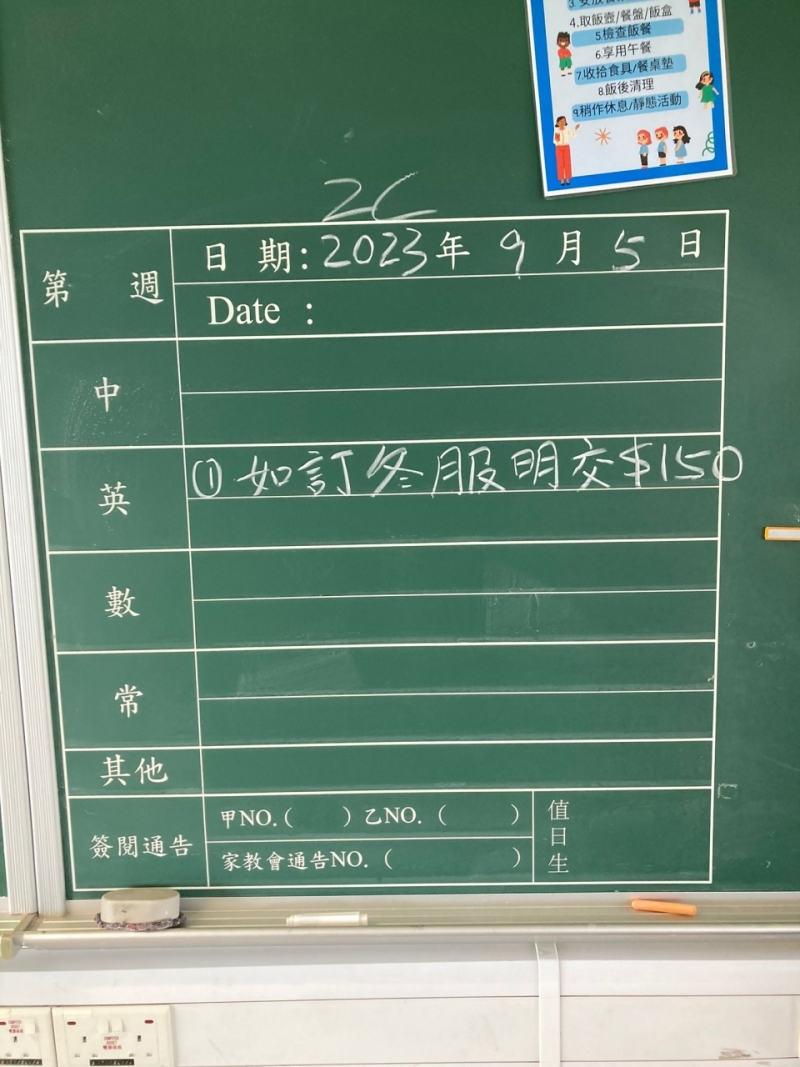 4.取飯壺/餐盤/飯盒
5.檢查飯餐
6.享用午餐
7.收拾食具/餐桌墊
8.飯後清理
9.稍作休息/靜態活動
2C
第 週
日 期:2023年 9 月 5 日
Date :
中
英
①如訂冬服明交$150
數
常
其他
簽閱通告
甲NO.( ) 乙NO. ( )
家教會通告NO. ( )
值日生